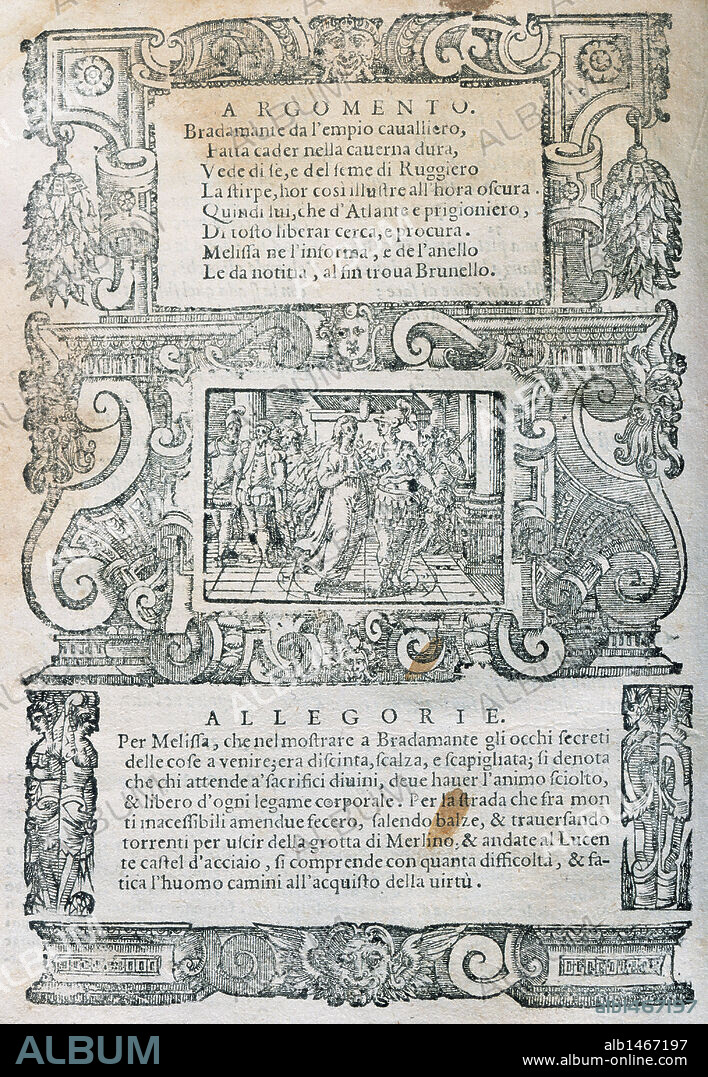 ARGOMENTO.
Bradamante da l'empio caualliero,
Fatta cader nella cauerna dura,
Vede di se, e del seme di Ruggiero
La stirpe, hor così illustre all'hora oscura.
Quindi lui, che d'Atlante e prigioniero,
Di tosto liberar cerca, e procura.
Melissa ne l'informa, e de l'anello
Le da notitia, al fin troua Brunello.
ALLEGORIE.
Per Melissa, che nel mostrare a Bradamante gli occhi secreti
delle cose a venire; era discinta, scalza, e scapigliata; si denota
che chi attende a' sacrifici diuini, deue hauer l'animo sciolto,
& libero d'ogni legame corporale. Per la strada che fra mon
ti inacessibili amendue fecero, salendo balze, & trauersando
torrenti per uscir della grotta di Merlino, & andate al Lucen
te castel d'acciaio, si comprende con quanta difficoltà, & fa-
tica l'huomo camini all'acquisto della uirtù.
alb1467197
ALBUM
alb1467197
www.album-online.com